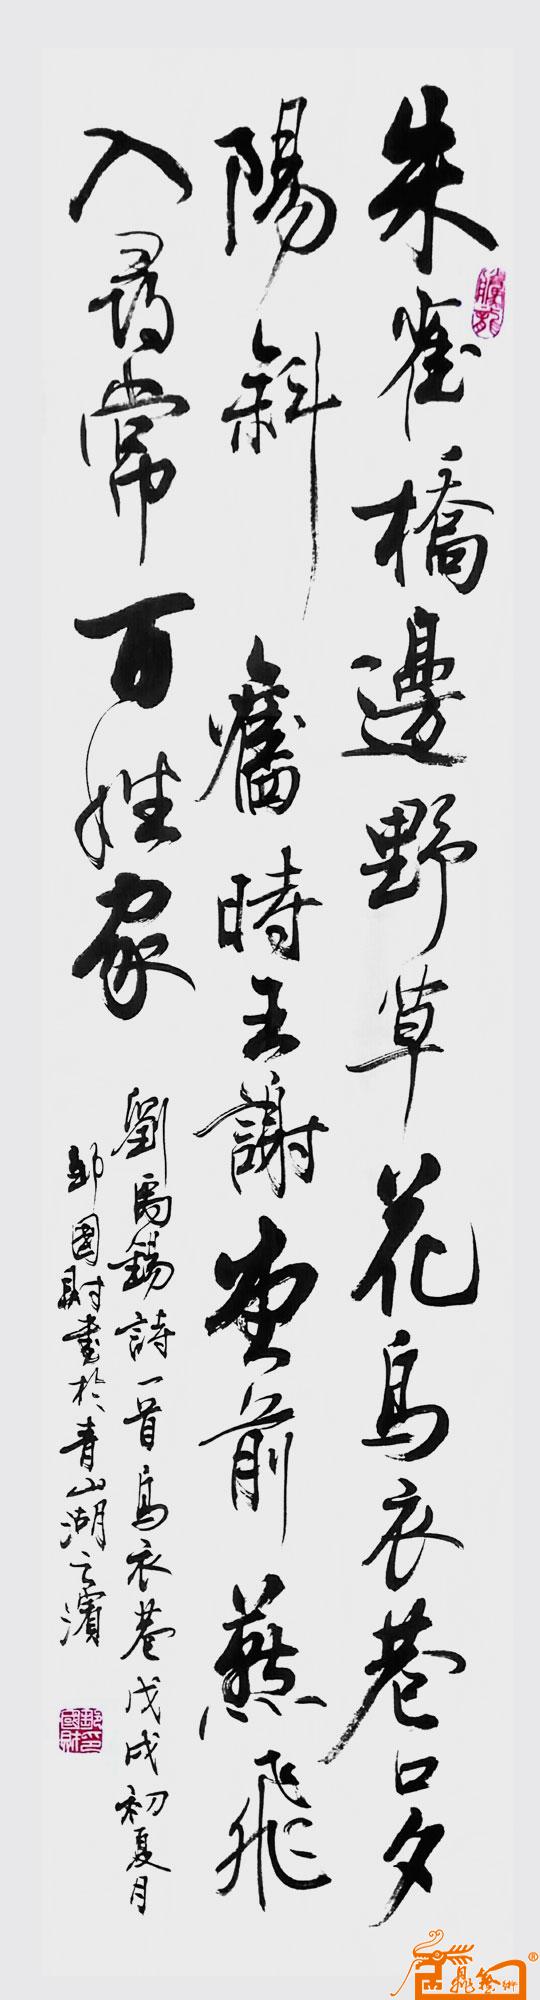 朱雀橋邊野草花烏衣巷口夕
陽斜舊時王謝堂前燕飛
入尋常百姓家
劉禹錫詩一首烏衣巷戊戌初夏月
鄒國財書於青山湖之濱